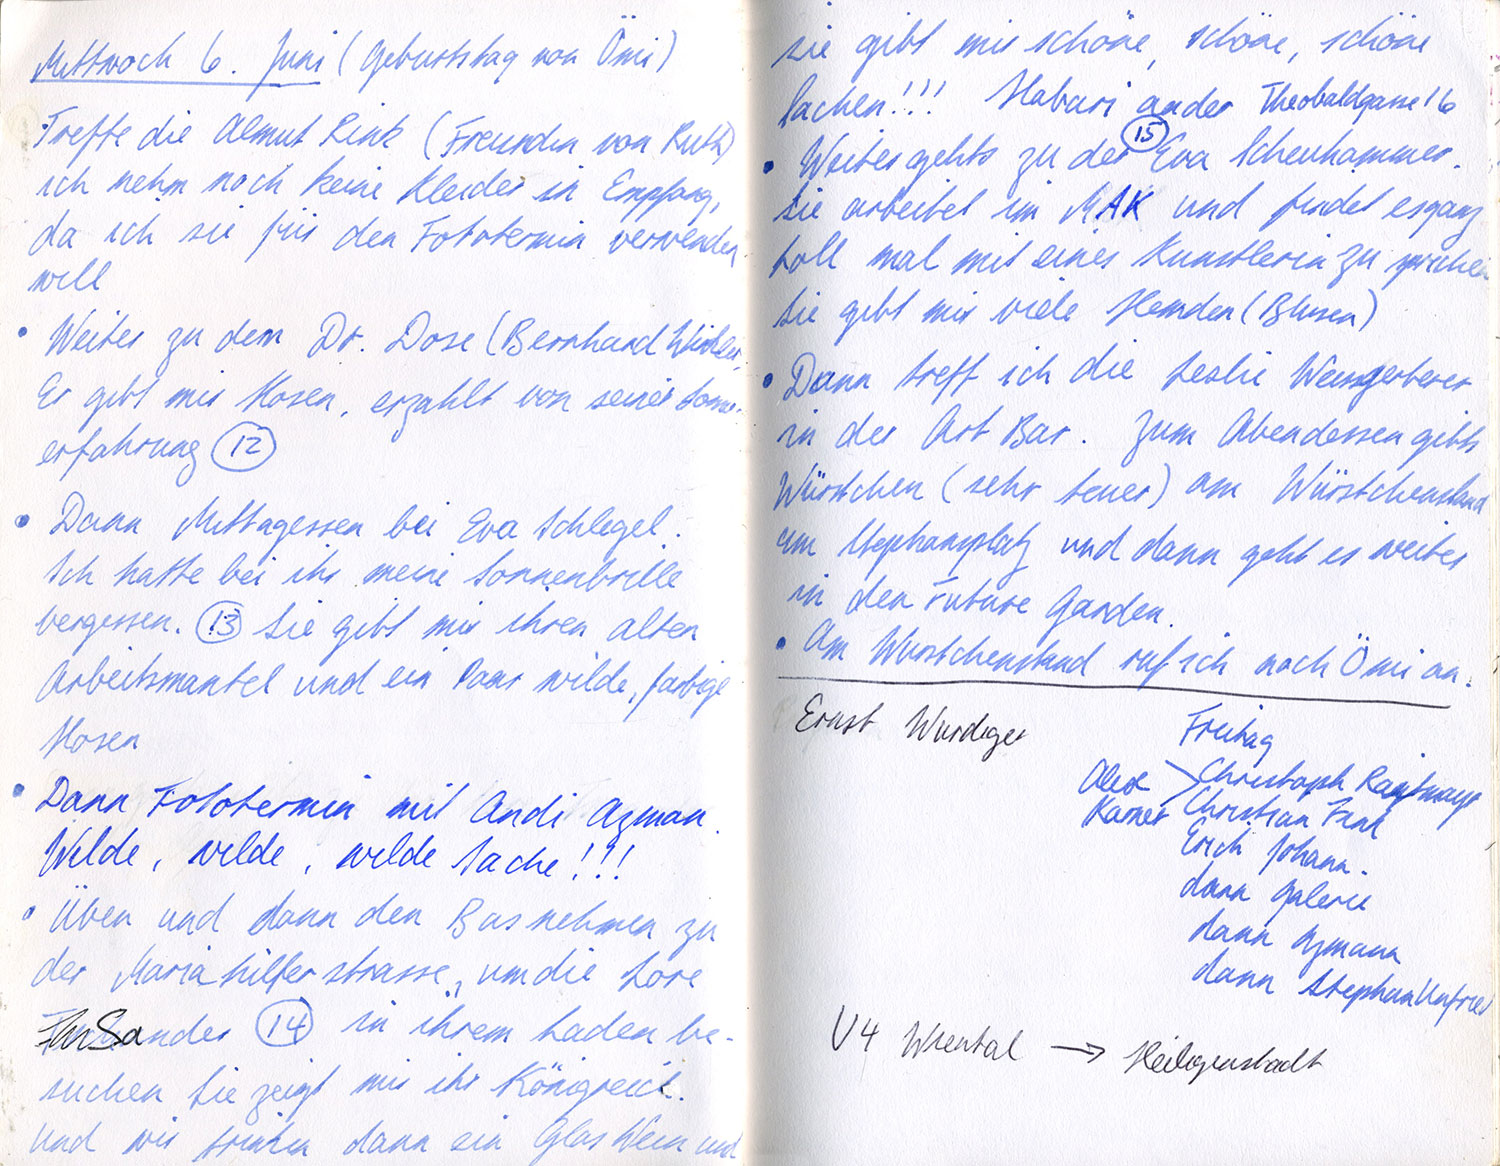 Mittwoch 6. Juni (Geburtstag von Ömi)
Treffe die Almut Rink (Freundin von Ruth)
ich nehm noch keine Kleider in Empfang,
da ich sie für den Fototermin verwenden
will
• Weiter zu dem Dr. Dose (Bernhard
Er gibt mir Hosen, erzählt von seiner
erfahrung 12
• Dann Mittagessen bei Eva Schlegel.
Ich hatte bei ihr meine Sonnenbrille
vergessen. 13 Sie gibt mir ihren alten
Arbeitsmantel und ein Paar wilde, farbige
Hosen
• Dann Fototermin mit Andi Azman.
Wilde, wilde, wilde Sache!!!
• Üben und dann den Bus nehmen zu
der Mariahilferstrasse, um die Lore
14 in ihrem Laden be-
suchen Sie zeigt mir ihr Königreich.
Und wir trinken dann ein Glas Wein und
sie gibt mir schöne, schöne, schöne
Sachen!!! Habari an der Theobaldgasse 16
• Weiter gehts zu der 15 Eva Scheuhammer.
Sie arbeitet im MAK und findet es ganz
toll mal mit einer Künstlerin zu sprechen
Sie gibt mir viele Hemden (Blusen)
• Dann treff ich die Leslie Weissgerberer
in der Art Bar. Zum Abendessen gibts
Würstchen (sehr teuer) am Würstchenstand
am Stephansplatz und dann geht es weiter
in den Future Garden.
• Am Wurstchenstand ruf ich noch Ömi an.
Ernst Wurdiger
Freitag
Alex > Christoph
Kamer Christian
Erich Johann.
dann Galerie
dann Azmann
dann Stephan Unfried
U4 Wiental → Heiligenstadt